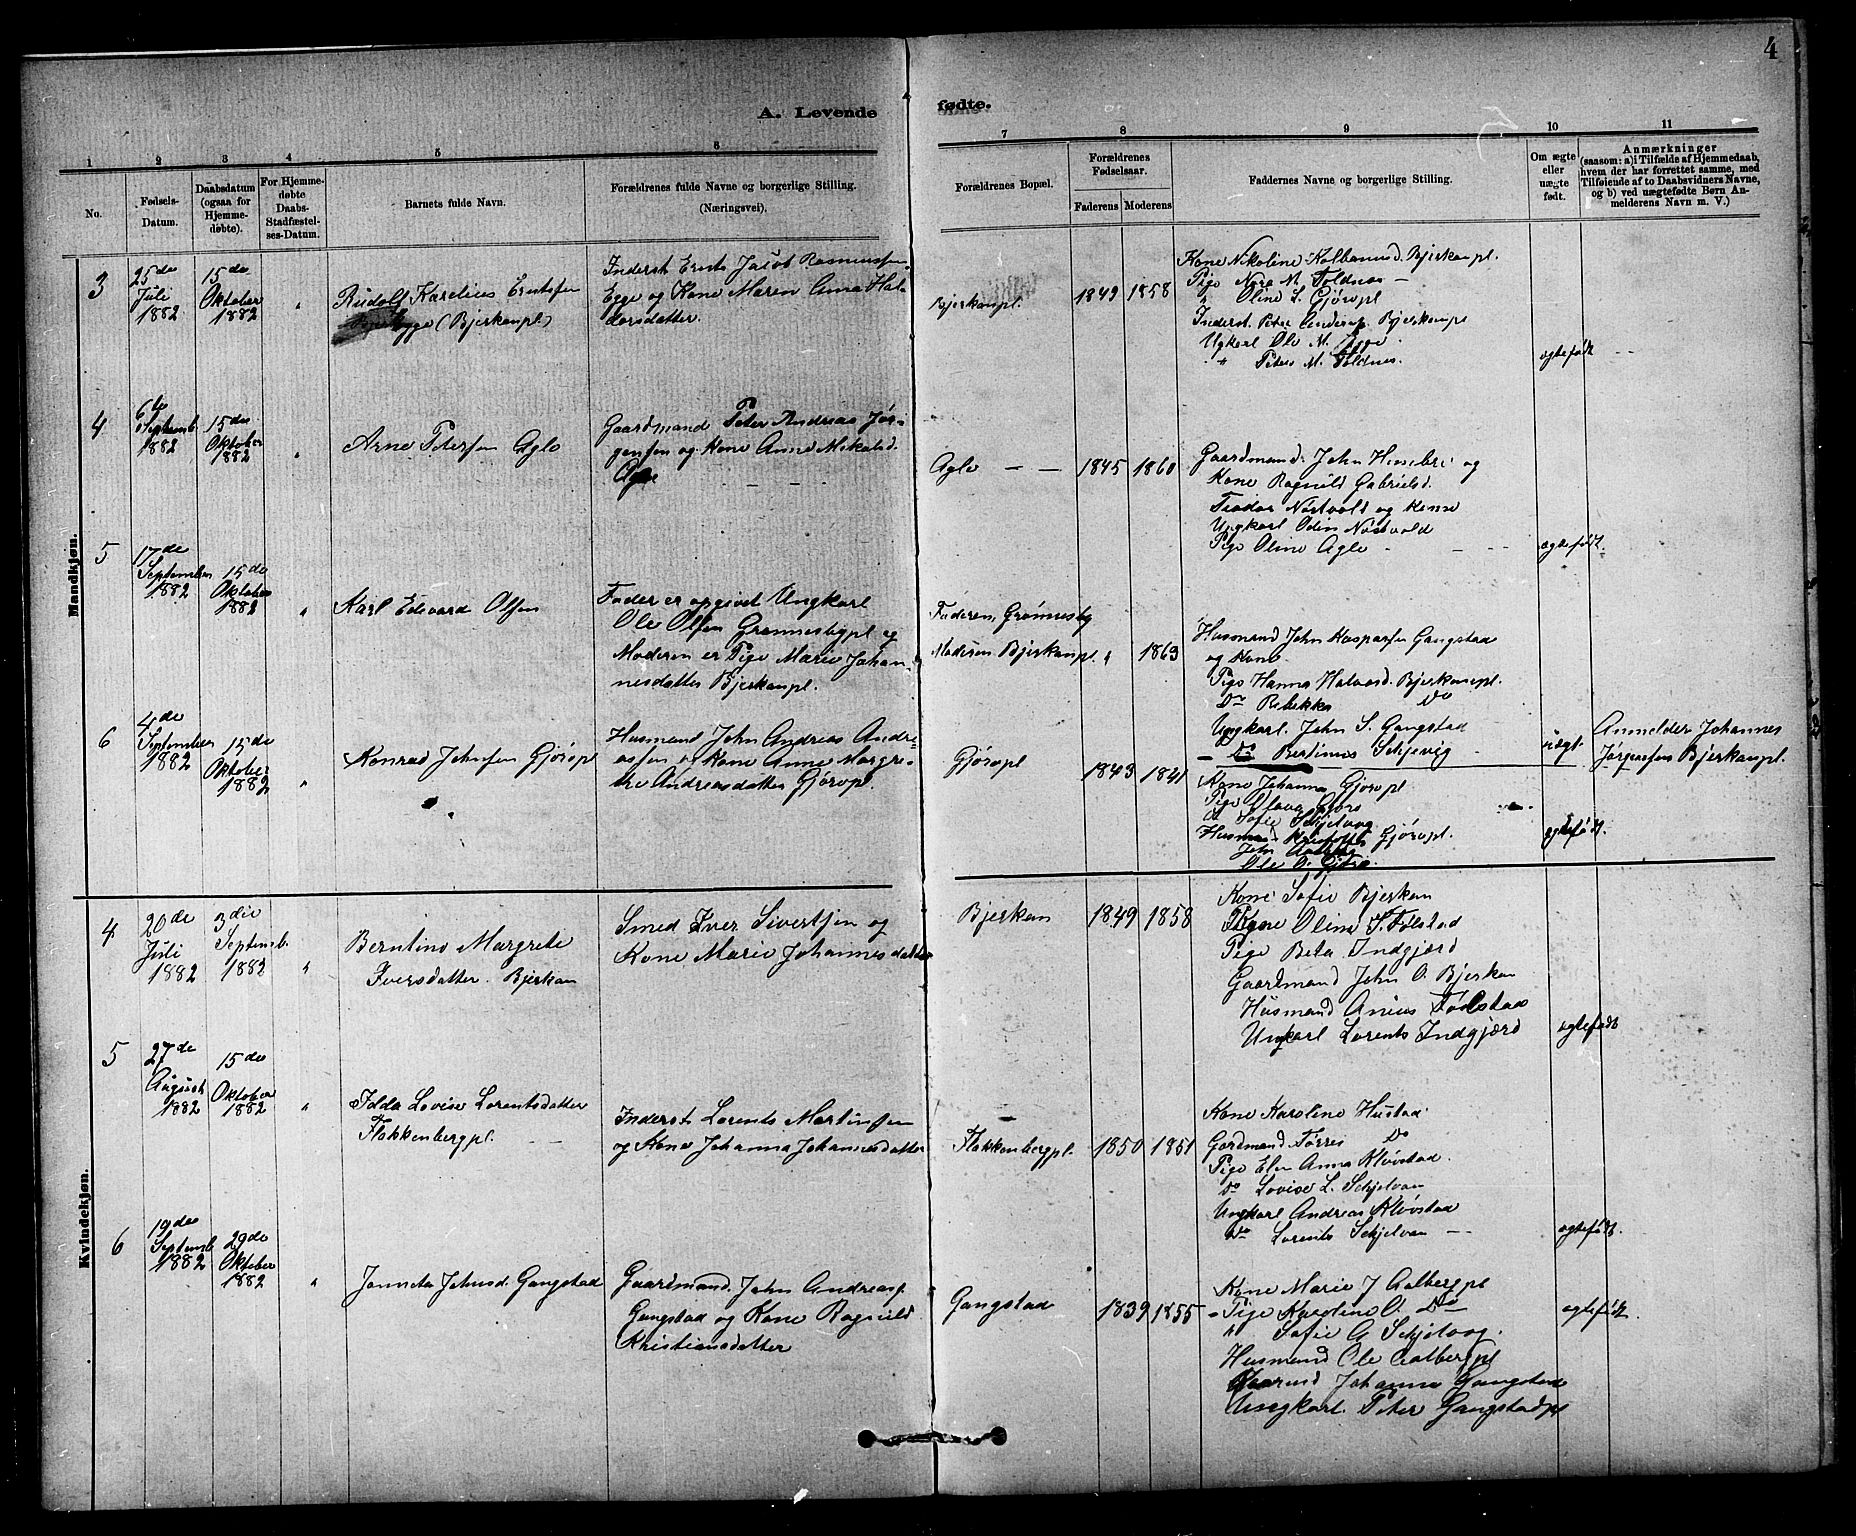 4
A. Levende fødte.
1 2 3 4 5 6 7 8 9 10 11
No.
Fødsels-
Datum.
Daabsdatum
(ogsaa for
Hjemme-
døbte).
For Hjemme-
døbte
Daabs-
Stadfæstel-
ses-Datum.
Barnets fulde Navn.
Forældrenes fulde Navne og borgerlige Stilling.
(Næringsvei).
Forældrenes Bopæl.
Forældrenes
Fødselsaar.
Faderens Moderens
Faddernes Navne og borgerlige Stilling.
Om ægte
eller
uægte
født.
Anmærkninger
(saasom: a) i Tilfælde af Hjemmedaab,
hvem der har forrettet samme, med
Tilføiende af to Daabsvidners Navne,
og b) ved uægtefødte Børn An-
melderens Navn m. V.)
Mandkjøn.
3
25de
Juli
1882
15de
Oktober
1882
Rudolf Karelius Erntsen
(Bjerkanpl)
Inderst Ernts Jacob Rasmussen
Egge og Kone Maren Anna Hal-
dorsdatter.
Bjerkanpl.
1849 1858
Kone Nikoline Kolbanusd. Bjerkanpl.
Pige Nora M. Foldnes
" Oline S. Gjöropl
Inderst. Peter Andersen Bjerkanpl
Ugkarl Ole M.
" Peter M. Foldnes.
egtefödt
4
6te
Septemb.
1882
15de
Oktober
1882
Arne Petersen Aglo
Gaardmand Peter Andreas Jör-
gensen og Kone Anne Mikalsd.
Aglo
Aglo
1845 1860
Gaardmand John Hinsbri og
Kone Ragnild Gabrielsd.
Teodor Nöstvold og Kone
Ungkarl Odin Nöstvold
Pige Oline Aglo
egtefödt.
5
17de
September
1882
15de
Oktober
1882
Karl Edevard Olsen
Fader er opgivet Ungkarl
Ole Olsen Grönnesbypl og
Moderen er Pige Marie Johan-
nesdatter Bjerkanpl.
Faderen, Grönnesby
Moderen Bjerkanpl.
" 1863
Husmand John Kasparsen Gangstad
og Kone.
Pige Hanna Halvard. Bjerkanpl.
Do Rebekka Do
Ungkarl. John S. Gangstad
Do Bertinus Schjevig
uegt.
Anmelder Johannes
Jörgensen Bjerkanpl.
6
4de
September
1882
15de
Oktober
1882
Konrad Johnsen Gjöropl
Husmand John Andreas Andre-
asen og Kone Anne Margre-
the Andreasdatter Gjöropl.
Gjöropl
1843 1841
Kone Johanna Gjöropl
Pige Olava Gjöro
Sofie Schjelvag
Husmand Kristoffer Gjöropl.
John
Ole O. Gjöro.
egtefödt.
Kvindekjøn.
4
20de
Juli
1882
3die
Septemb.
1882
Berntine Margrete
Iversdatter. Bjerkan
Smed Iver Sivertsen og
Kone Marie Johannesdatter
Bjerkan
1849 1858
Kone Sofie Bjerkan
Oline T. Folstad
Pige Beta Indgjærd
Gaardmand John O. Bjerkan
Husmand Anius Födstad
Ungkarl Lorents Indgjærd
egtefödt
5
27de
August
1882
15de
Oktober
1882
Idda Lovise Lorentsdatter
Flakkenbergpl.
Inderst Lorents Martinsen
og Kone Johanna Johannesdatter
Flakkenbergpl.
1850 1851
Kone Karoline Hustad
Gardmand Törres Do
Pige Elen Anna Klövstad
Do Lovise L. Schjelvan
Ungkarl Andreas Klövstad
Do Lorents Schjelvan
egtefödt.
6
19de
Septemb
1882
29de
Oktober
1882
Janneta Johnsd. Gangstad
Gaardmand. John Andreasf.
Gangstad og Kone Ragnild
Kristiansdatter
Gangstad
1839 1855
Kone Marie J Aalbergpl
Pige Karoline O. Do
" Sofie A Schjelvag.
Husmand Ole Aalbergpl
Gaarmd Johannes Gangstad
Ungkarl. Peter Gangstadpl
egtefödt